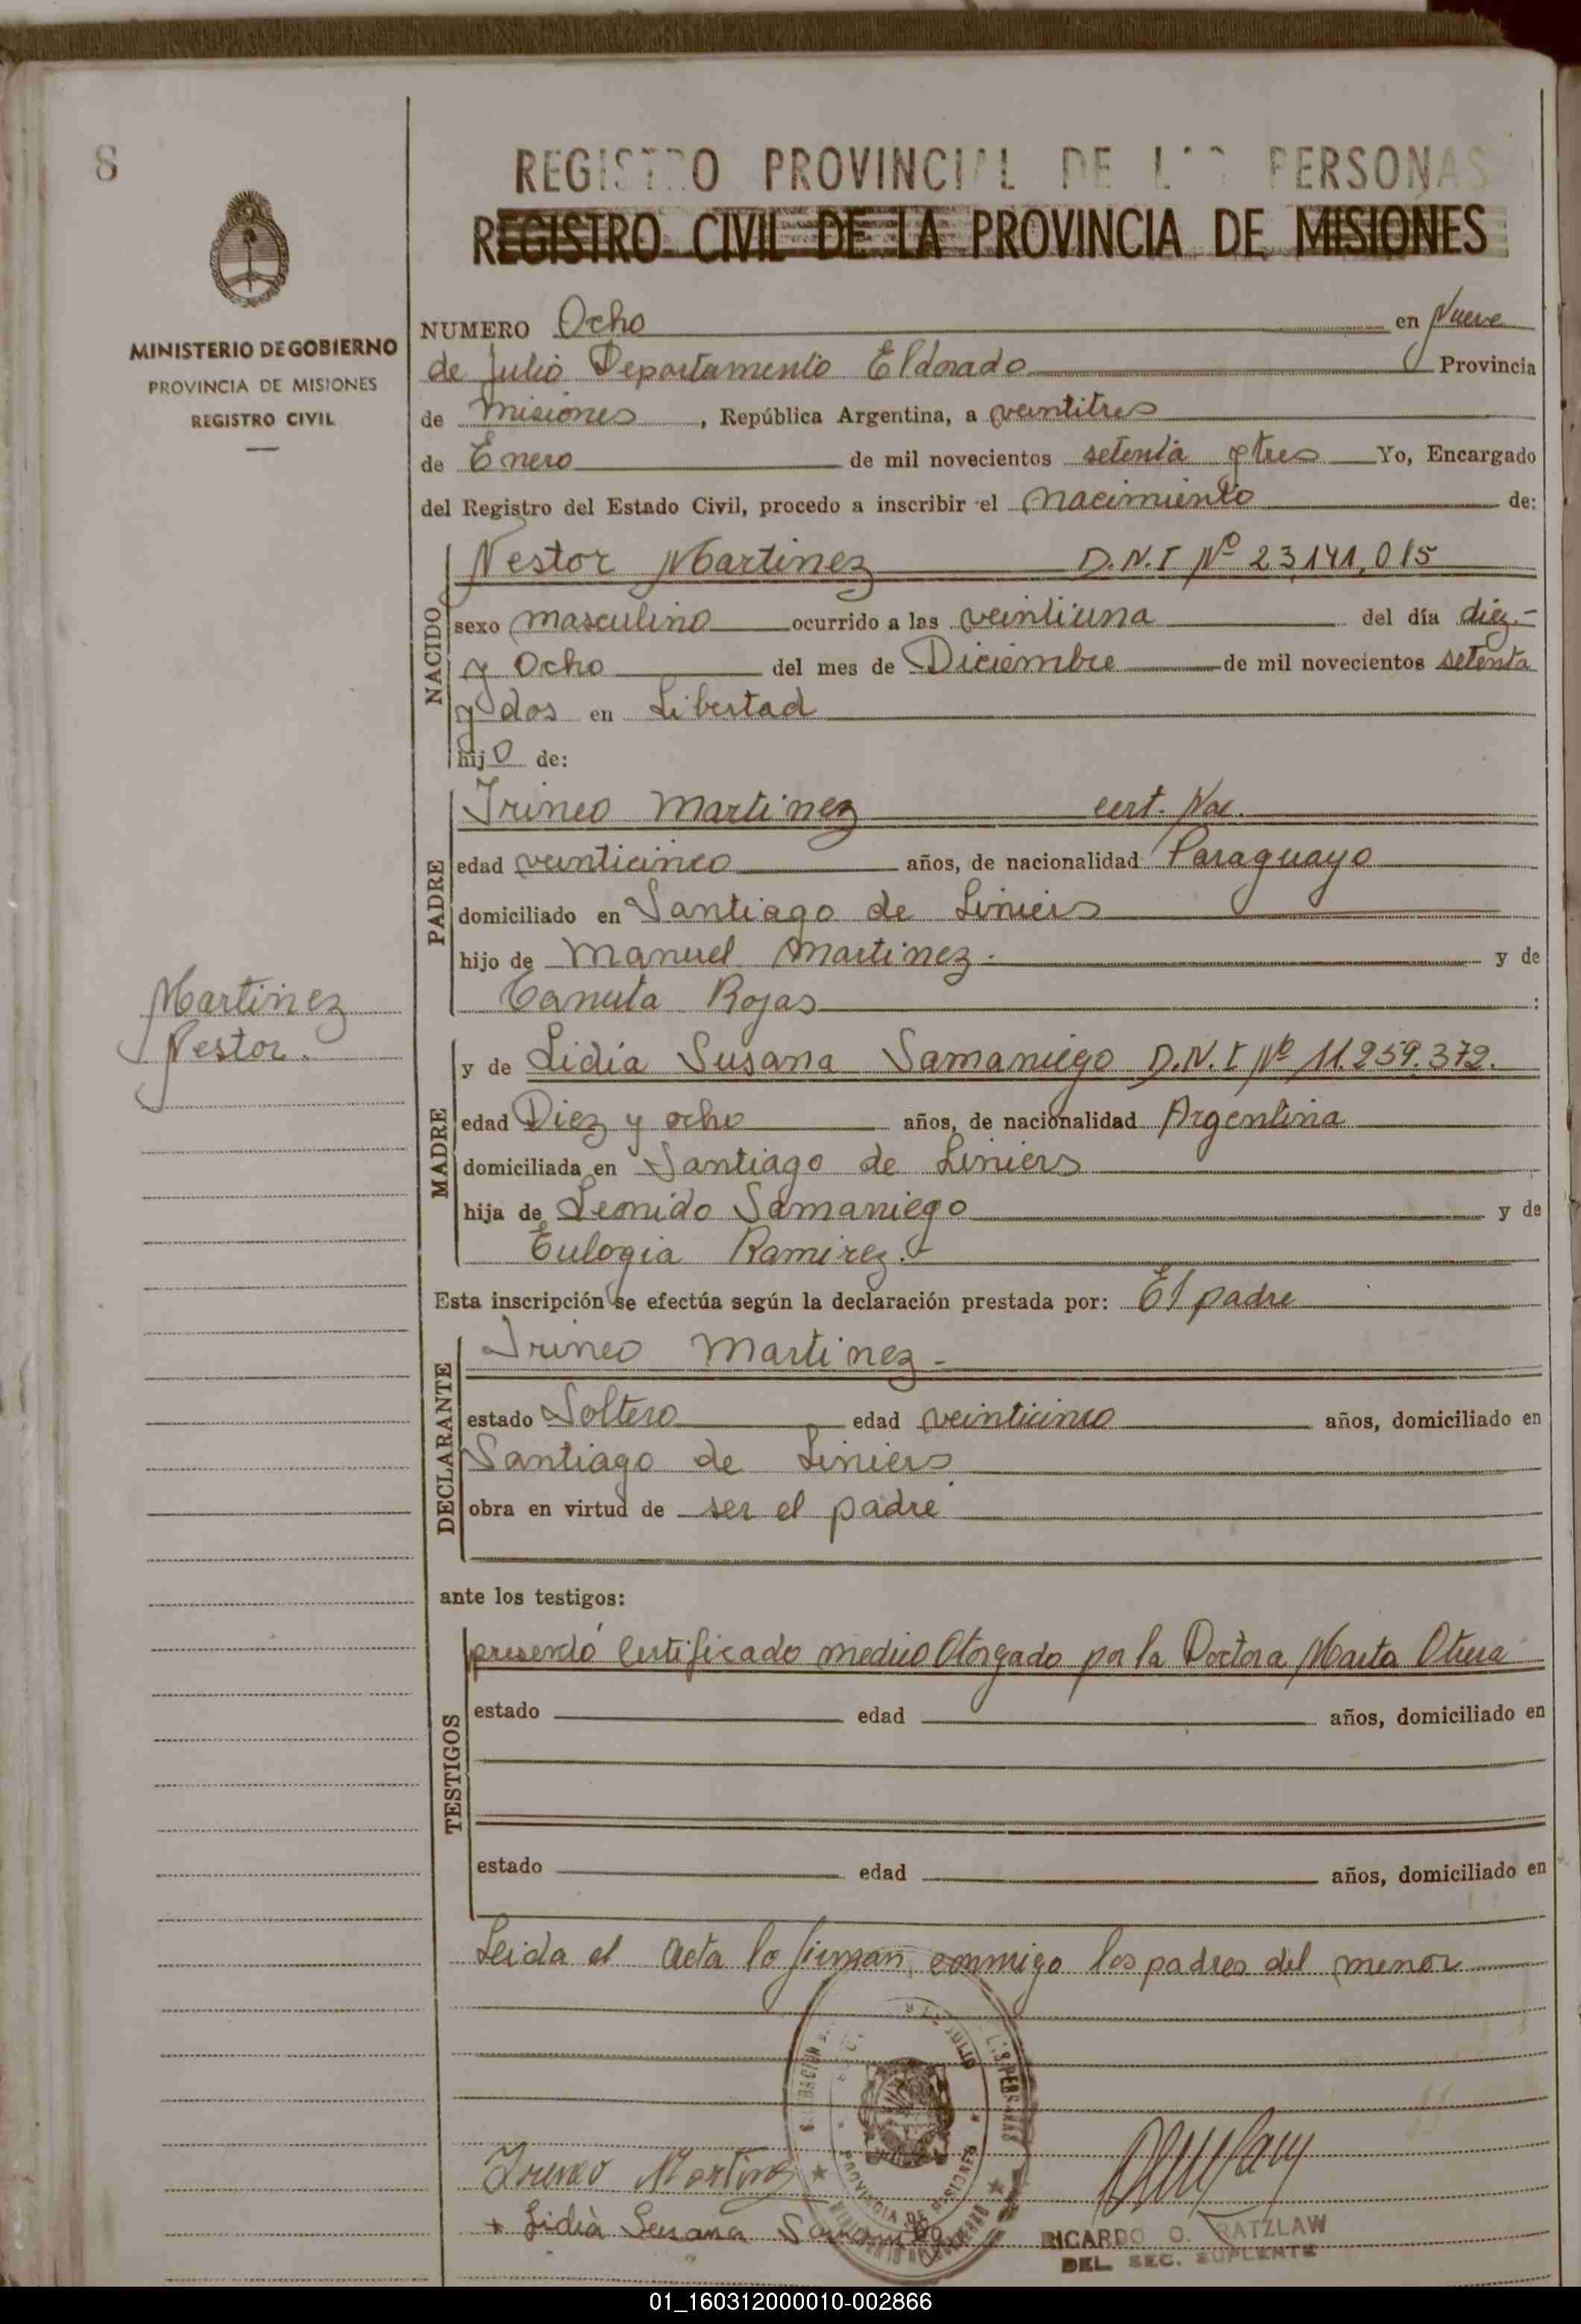 8
REGISTRO PROVINCIAL DE LAS PERSONAS
REGISTRO CIVIL DE LA PROVINCIA DE MISIONES
MINISTERIO DE GOBIERNO
PROVINCIA DE MISIONES
REGISTRO CIVIL
NUMERO Ocho en Nueve
de Julio Departamento Eldorado Provincia
de Misiones, República Argentina, a veintitres
de Enero de mil novecientos setenta y tres Yo, Encargado
del Registro del Estado Civil, procedo a inscribir el nacimiento de:
NACIDO
Nestor Martinez D.N.I Nº 23,141,015
sexo masculino ocurrido a las veintiuna del día diez-
y Ocho del mes de Diciembre de mil novecientos setenta
y dos en Libertad
hijo de:
PADRE
Irineo Martinez cert. Nac.
edad veinticinco años, de nacionalidad Paraguayo
domiciliado en Santiago de Liniers
hijo de Manuel Martinez. y de
Canuta Rojas :
Martinez
Nestor.
MADRE
y de Lidia Susana Samaniego D.N.I Nº 11.259.372.
edad Diez y ocho años, de nacionalidad Argentina
domiciliada en Santiago de Liniers
hija de Leonido Samaniego y de
Eulogia Ramirez.
Esta inscripción se efectúa según la declaración prestada por: El padre
DECLARANTE
Irineo Martinez-
estado Soltero edad veinticinco años, domiciliado en
Santiago de Liniers
obra en virtud de ser el padre
ante los testigos:
TESTIGOS
presentó Certificado medico Otorgado por la Doctora Marta
estado edad años, domiciliado en
estado edad años, domiciliado en
Leida el Acta lo firman, conmigo los padres del menor
PROVINCIA DE MISIONES
Irineo Martinez
+ Lidia Susana Samaniego
RICARDO O. RATZLAW
DEL. SEC. SUPLENTE
01_160312000010-002866